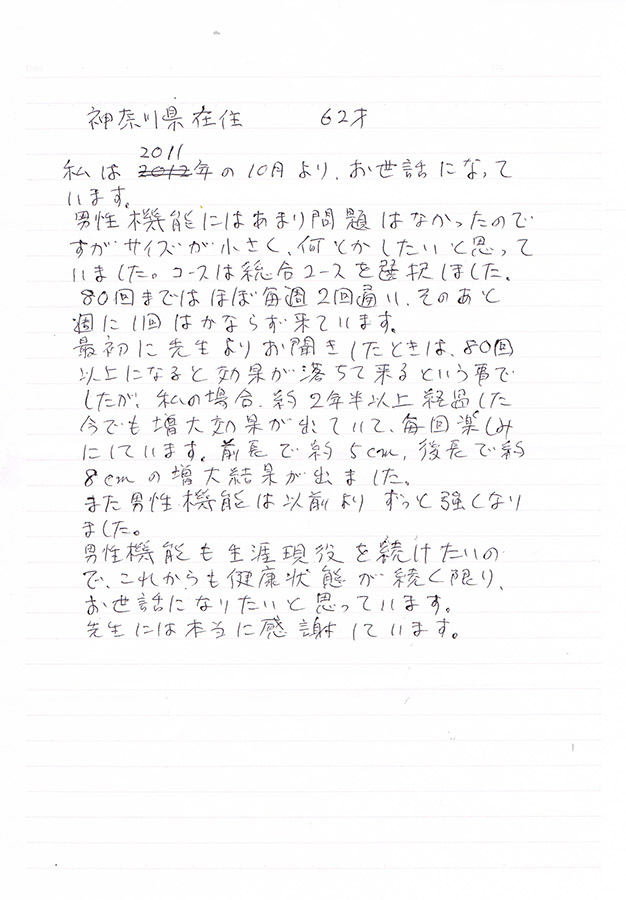 神奈川県在住　62才
2011
私は 2012年の10月より、お世話になって
います。
男性機能にはあまり問題はなかったので
すがサイズが小さく、何とかしたいと思って
いました。コースは総合コースを選択しました。
80回まではほぼ毎週2回通い、そのあと
週に1回はかならず来ています。
最初に先生よりお聞きしたときは、80回
以上になると効果が落ちて来るという事で
したが、私の場合、約2年半以上経過した
今でも増大効果が出ていて、毎回楽しみ
にしています。前長で約5cm, 後長で約
8cmの増大結果が出ました。
また男性機能は以前よりずっと強くなり
ました。
男性機能も生涯現役を続けたいの
で、これからも健康状態が続く限り、
お世話になりたいと思っています。
先生には本当に感謝しています。